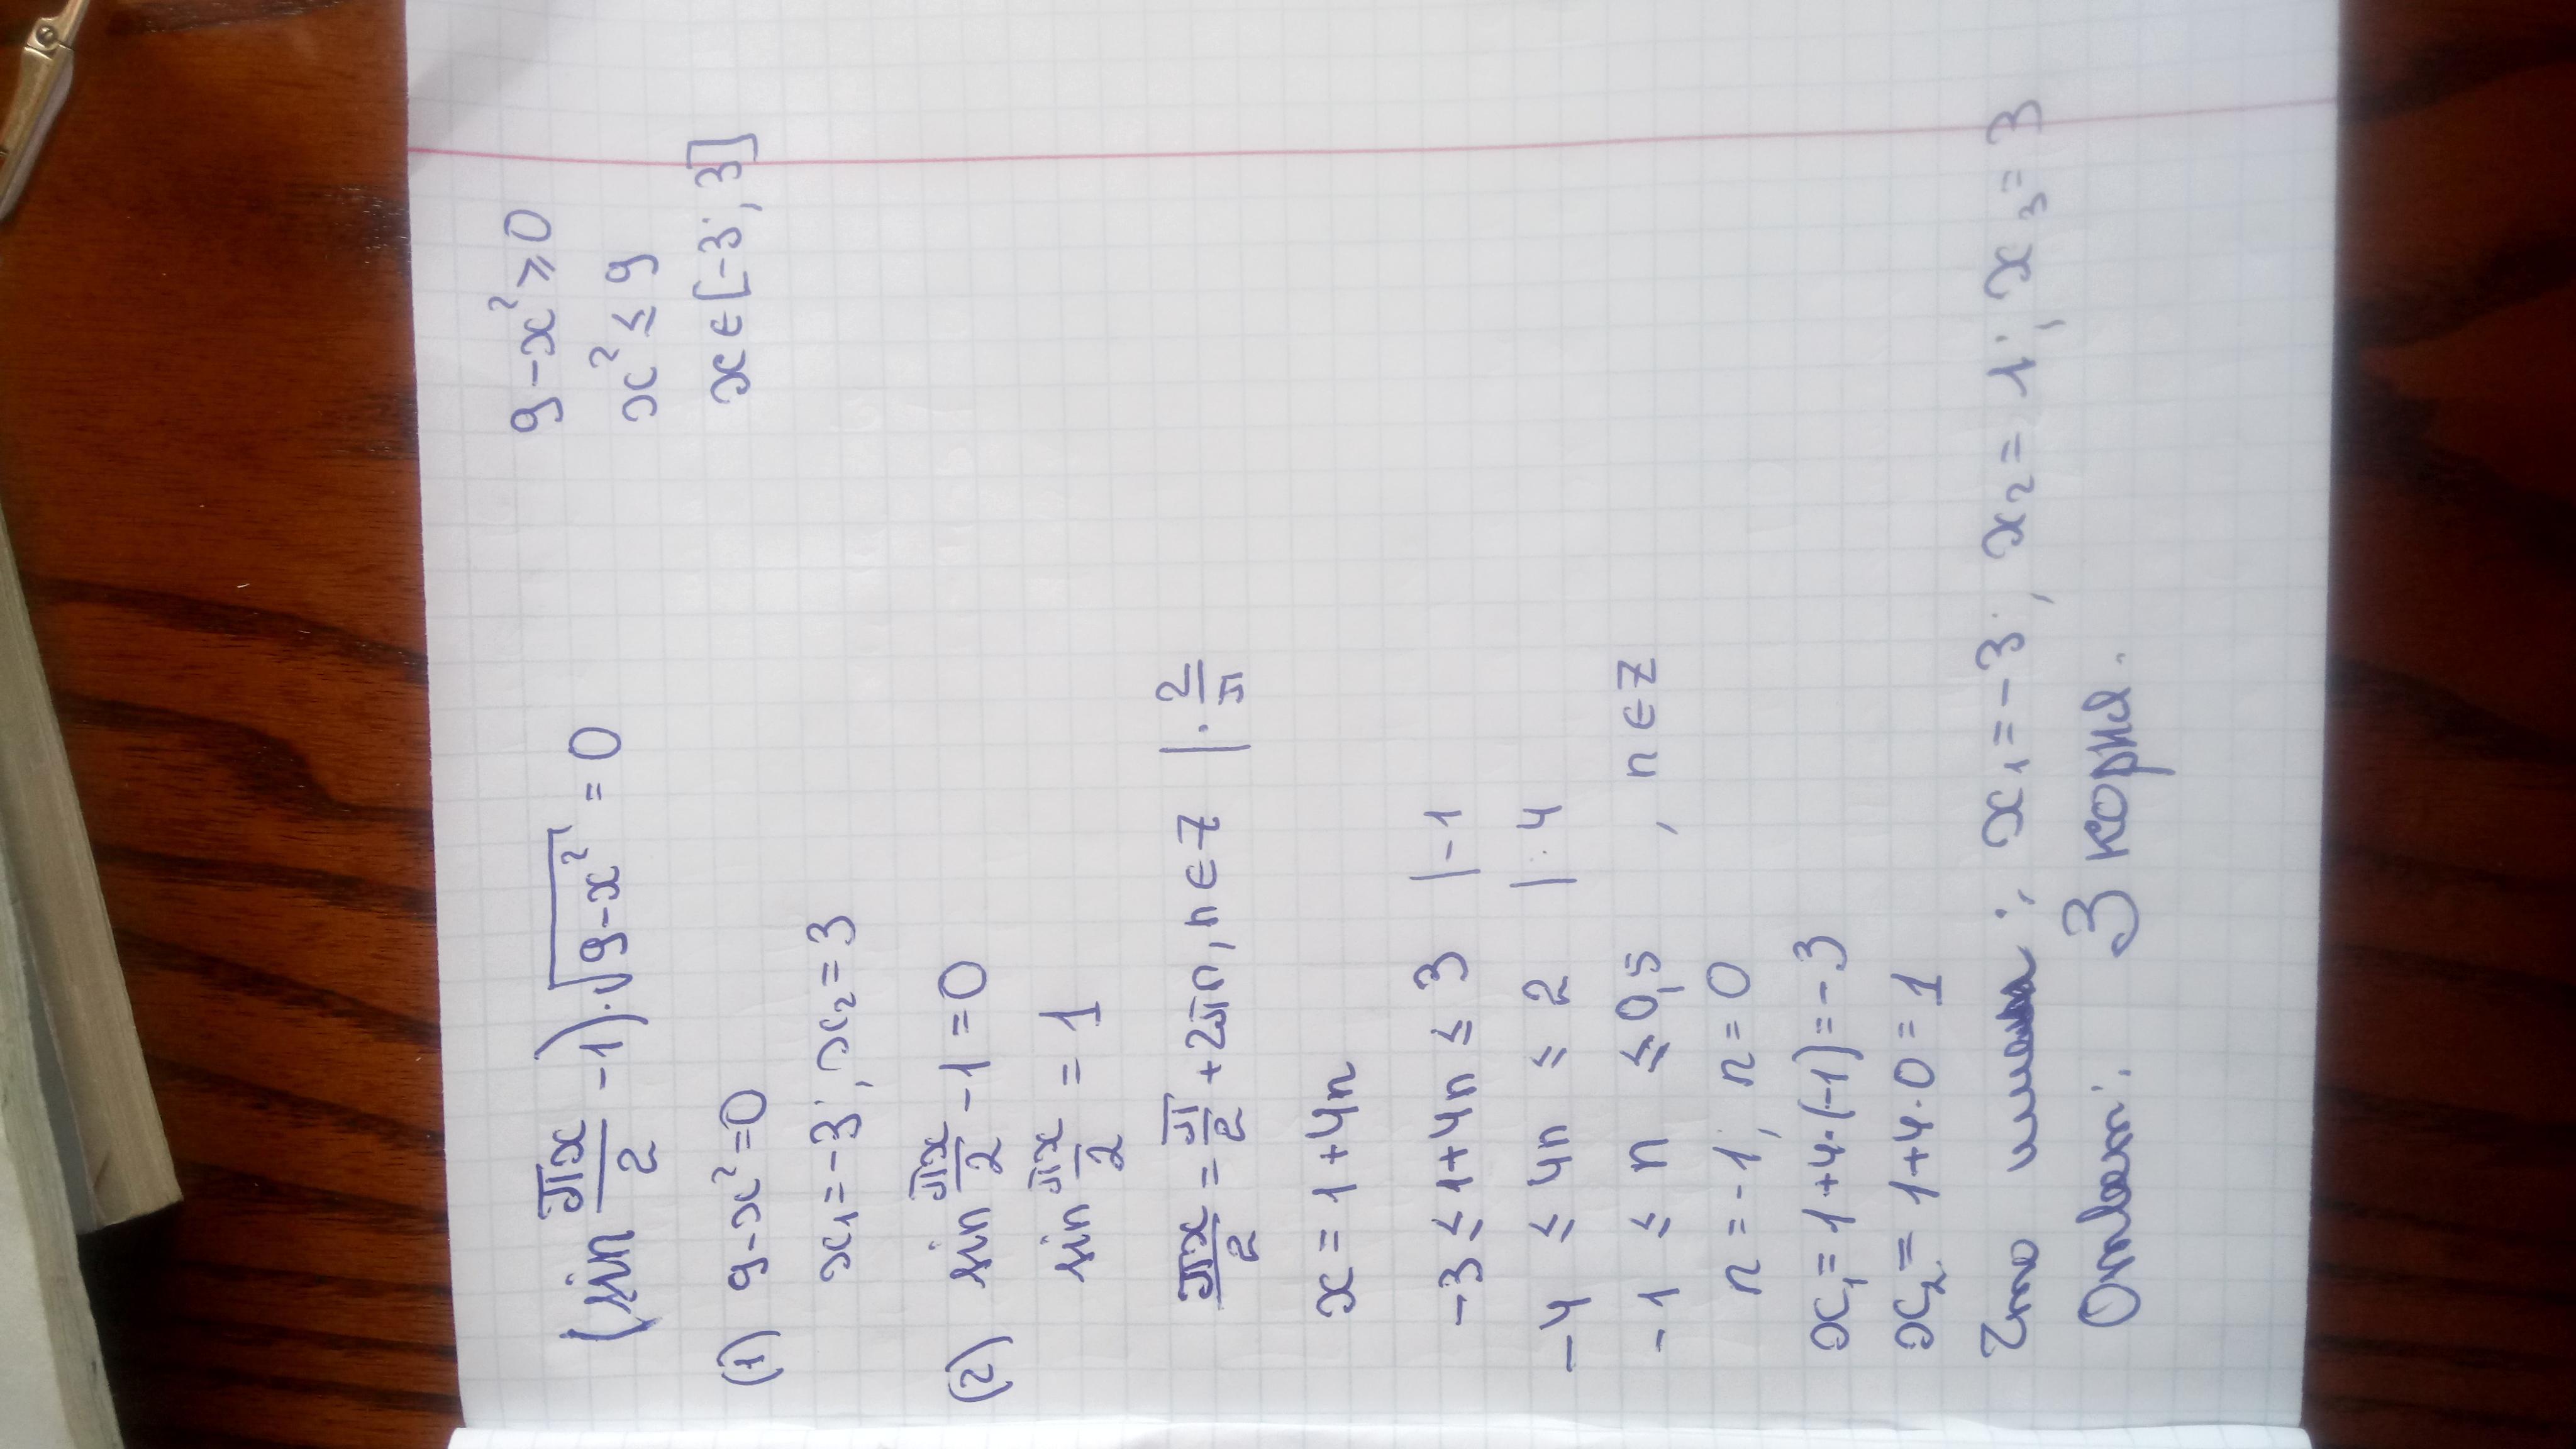 (sin πx/2 - 1)·√(9-x²) = 0
9-x² ≥ 0
x² ≤ 9
x ∈ [-3; 3]
(1) 9-x²=0
x₁=-3; x₂=3
(2) sin πx/2 - 1 = 0
sin πx/2 = 1
πx/2 = π/2 + 2πn, n ∈ Z |· 2/π
x = 1 + 4n
-3 ≤ 1+4n ≤ 3 |-1
-4 ≤ 4n ≤ 2 |:4
-1 ≤ n ≤ 0,5 , n ∈ Z
n = -1; n = 0
x₁ = 1+4·(-1) = -3
x₂ = 1+4·0 = 1
: x₁ = -3; x₂ = 1; x₃ = 3
Ответ: 3 корня.